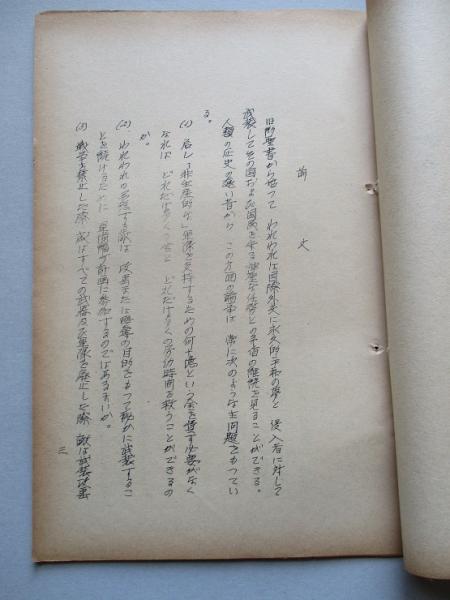 前文
旧約聖書から始つて われわれは国際外交に永久的平和の夢と 侵入者に対して
武装してその国および国民を守る神聖な任務との矛盾の継続を見ることができる。
人類の歴史の遠い昔から この方面の論争は 常に次のような主問題をもつてい
る。
(1) 若し「非生産的な」軍隊を支持するための何十億という金を費す必要がなく
なれば どれだけ多くの富と どれだけ多くの労力時間を救うことができるの
か。
(2) われわれの 敵は 攻撃または の目的をもつて秘かに武装するこ
とを続けるために 軍備 計画に参加するのではあるまいか。
(3) 戦争を禁止した際 或はすべての武器及び軍隊を廃止した際 敵は武装
三